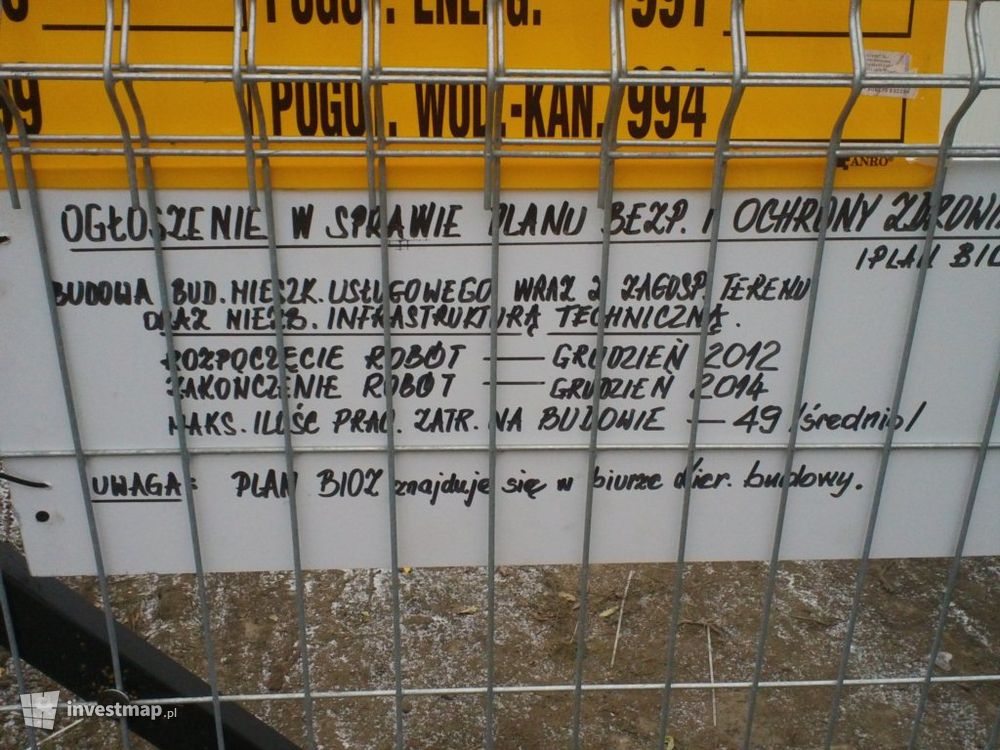 POGOT. ENERG. 991
POGOT. WOD.-KAN. 994
ANRO
OGŁOSZENIE W SPRAWIE PLANU BEZP. I OCHRONY ZDROWI
/PLAN BIO
BUDOWA BUD. MIESZK. USŁUGOWEGO WRAZ Z ZAGOSP. TERENU
ORAZ NIEZB. INFRASTRUKTURĄ TECHNICZNĄ.
ROZPOCZĘCIE ROBÓT — GRUDZIEŃ 2012
ZAKOŃCZENIE ROBÓT — GRUDZIEŃ 2014
MAKS. ILOŚĆ PRAC. ZATR. NA BUDOWIE — 49 /średnio/
UWAGA: PLAN BIOZ znajduje się w biurze kier. budowy.
investmap.pl